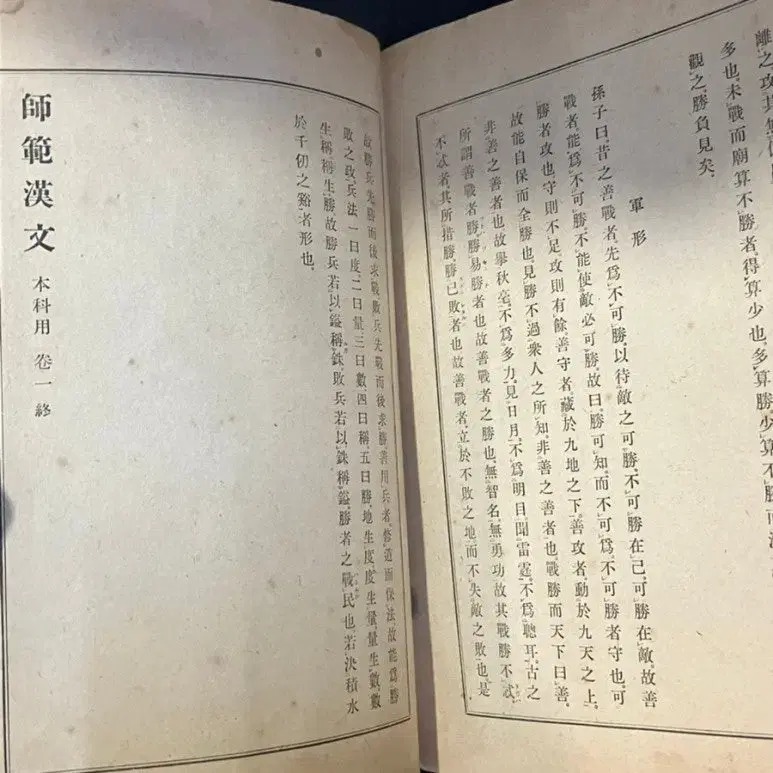 離之、攻其無
多也、未戰而廟算不勝者、得算少也、多算勝、少算不勝、而
觀之、勝負見矣。
軍形
孫子曰昔之善戰者、先爲不可勝、以待敵之可勝、不可勝在己、可勝在敵、故善
戰者、能爲不可勝、不能使敵必可勝、故曰、勝可知、而不可爲、不可勝者守也、可
勝者攻也、守則不足、攻則有餘、善守者、藏於九地之下、善攻者、動於九天之上、
故能自保而全勝也、見勝不過衆人之所知、非善之善者也、戰勝而天下曰善、
非善之善者也、故擧秋毫、不爲多力、見日月、不爲明目、聞雷霆、不爲聰耳、古之
所謂善戰者、勝勝易勝者也、故善戰者之勝也、無智名、無勇功、故其戰勝不忒、
不忒者、其所措勝、勝已敗者也、故善戰者、立於不敗之地、而不失敵之敗也、是
故勝兵先勝而後求戰、敗兵先戰而後求勝、善用兵者、修道而保法、故能爲勝
敗之政、兵法一曰度、二曰量、三曰數、四曰稱、五曰勝、地生度、度生量、量生數、數
生稱、稱生勝、故勝兵若以鎰稱銖、敗兵若以銖稱鎰、勝者之戰民也、若決積水
於千仞之谿者形也。
師範漢文 本科用 卷一終